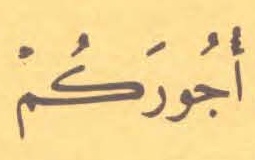 أُجُورَكُمْ